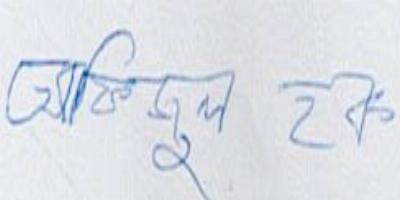 আজিজুল হক